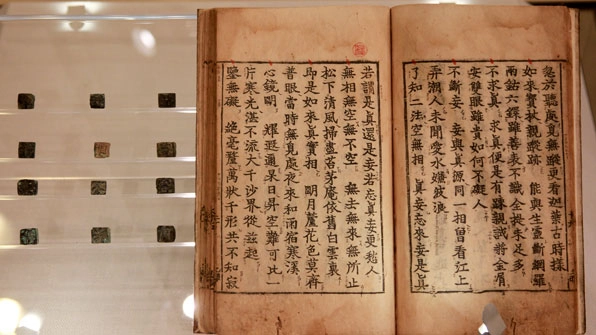 於聽處見無蹤更看迦葉古時樣
如來寶杖親蹤跡 能與生靈斷網羅
兩鈷六鐶雖善表不識全提未足多
不求真 求真便是有疎親試將金屑
安雙眼雖貴如何不礙人
不斷妄 妄與真源同一相曾看江上
弄潮人未聞愛水嫌波浪
了知二法空無相 真妄忘來妄是真
若謂是真還是妄若忘真妄更愁人
無相無空無不空 無去無來無所止
松下清風掃盡苔茅庵依舊白雲裏
即是如來真實相 明月蘆花色莫齊
普眼當時無覓處夜來和雨宿寒溪
心鏡明 耀遐邇杲日昇空難可比一
片寒光湛不流大千沙界從茲起
鑒無礙 絶毫釐萬狀千形共不知寂